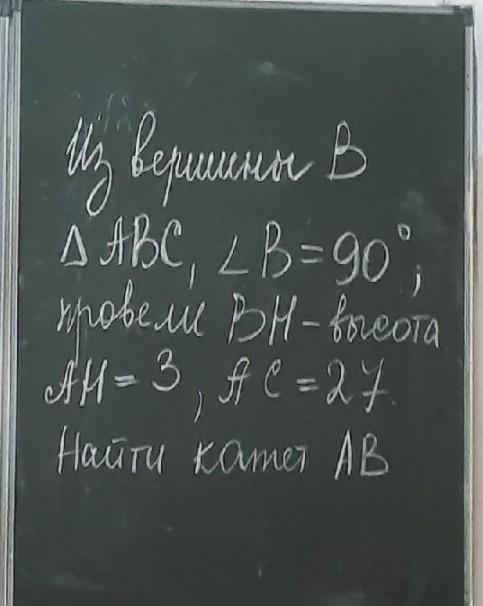 Из вершины B
Δ ABC, ∠B=90°;
провели BH-высота
AH=3, AC=27.
Найти катет AB